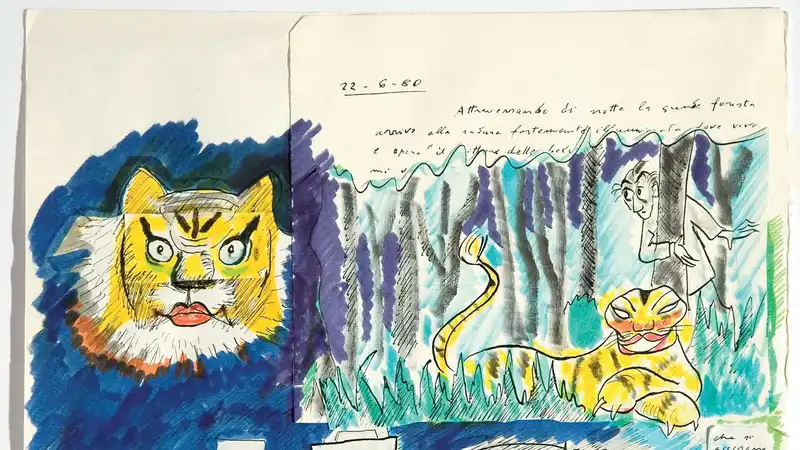 22-6-80
Attraversando di notte la grande foresta
arrivo alla radura fortemente illuminata dove vive
e opera "il pittore delle
mi
che si